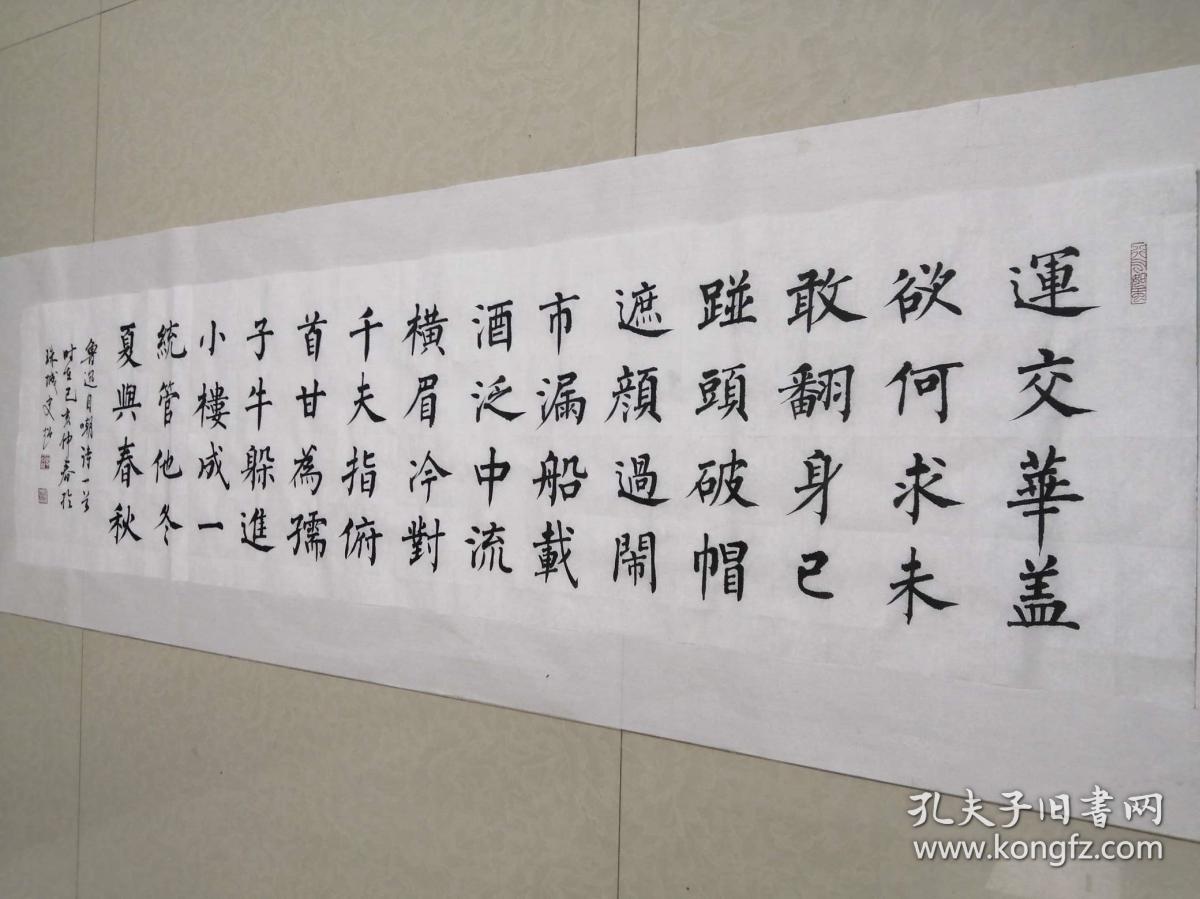 運交華盖
欲何求未
敢翻身已
踫頭破帽
遮顔過鬧
市漏船載
酒泛中流
横眉冷對
千夫指俯
首甘為孺
子牛躲進
小樓成一
統管他冬
夏與春秋
魯迅自嘲詩一首
时在己亥仲春於
珠城
孔夫子旧书网
www.kongfz.com